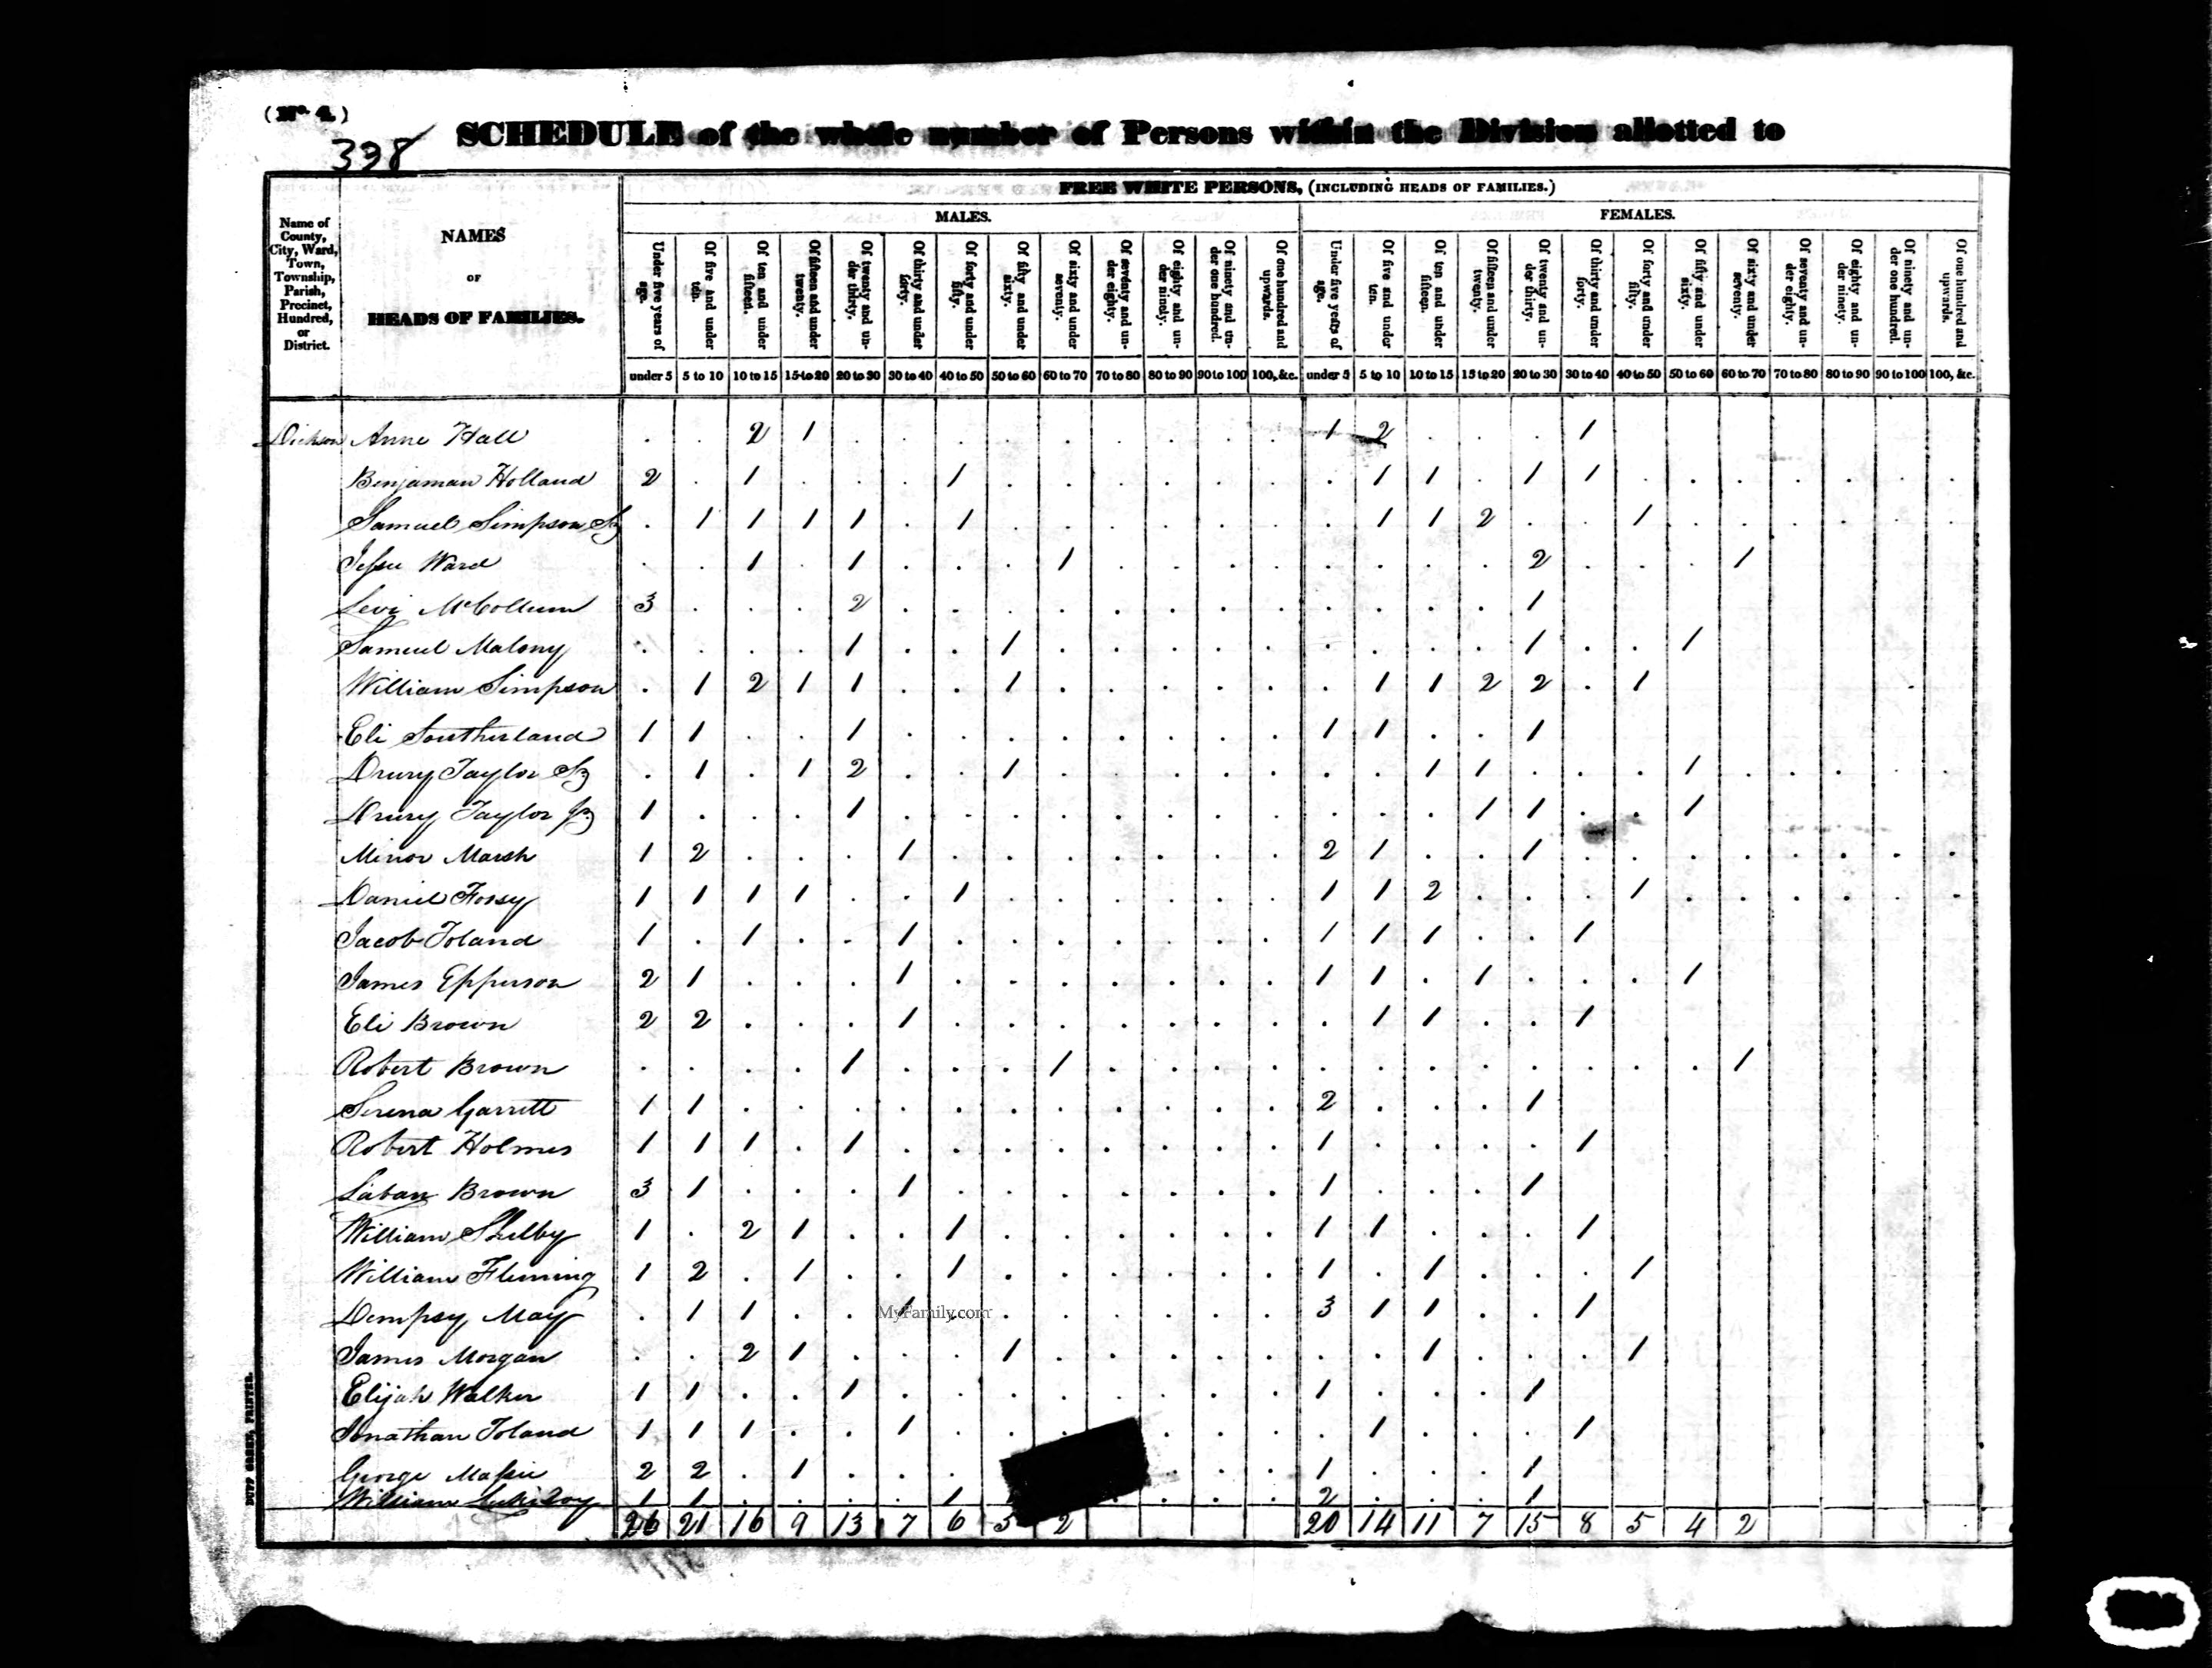 (No. 4.)
398
SCHEDULE of the whole number of Persons within the Division allotted to
FREE WHITE PERSONS, (INCLUDING HEADS OF FAMILIES.)
MALES. FEMALES.
Name of County, City, Ward, Town, Township, Parish, Precinct, Hundred, or District.
NAMES
OF
HEADS OF FAMILIES.
Under five years of age. Of five and under ten. Of ten and under fifteen. Of fifteen and under twenty. Of twenty and under thirty. Of thirty and under forty. Of forty and under fifty. Of fifty and under sixty. Of sixty and under seventy. Of seventy and under eighty. Of eighty and under ninety. Of ninety and under one hundred. Of one hundred and upwards. Under five years of age. Of five and under ten. Of ten and under fifteen. Of fifteen and under twenty. Of twenty and under thirty. Of thirty and under forty. Of forty and under fifty. Of fifty and under sixty. Of sixty and under seventy. Of seventy and under eighty. Of eighty and under ninety. Of ninety and under one hundred. Of one hundred and upwards.
under 5 5 to 10 10 to 15 15 to 20 20 to 30 30 to 40 40 to 50 50 to 60 60 to 70 70 to 80 80 to 90 90 to 100 100, &c. under 5 5 to 10 10 to 15 15 to 20 20 to 30 30 to 40 40 to 50 50 to 60 60 to 70 70 to 80 80 to 90 90 to 100 100, &c.
Dickson Anne Hall 2 1 1 2 1
Benjaman Holland 2 1 1 1 1 1 1
Samuel Simpson Sr 1 1 1 1 1 1 1 2 1
Jesse Ward 1 1 1 2 1
Levi McCollum 3 2 1
Samuel Malony 1 1 1 1
William Simpson 1 2 1 1 1 1 1 2 2 1
Eli Southerland 1 1 1 1 1 1
Drury Taylor Sr 1 1 2 1 1 1 1
Drury Taylor Jr 1 1 1 1 1
Minor Marsh 1 2 1 2 1 1
Daniel Fossy 1 1 1 1 1 1 1 2 1
Jacob Toland 1 1 1 1 1 1 1
James Epperson 2 1 1 1 1 1 1
Eli Brown 2 2 1 1 1 1
Robert Brown 1 1 1
Serena Garrett 1 1 2 1
Robert Holmes 1 1 1 1 1 1
Laban Brown 3 1 1 1 1
William Shelby 1 2 1 1 1 1 1
William Fleming 1 2 1 1 1 1 1
Dempsy May 1 1 1 3 1 1 1
MyFamily.com
James Morgan 2 1 1 1 1
Elijah Walker 1 1 1 1 1
Jonathan Toland 1 1 1 1 1 1
George Massie 2 2 1 1 1
William 1 1 1 2 1
26 21 16 9 13 7 6 5 2 20 14 11 7 15 8 5 4 2
DUFF GREEN, PRINTER.